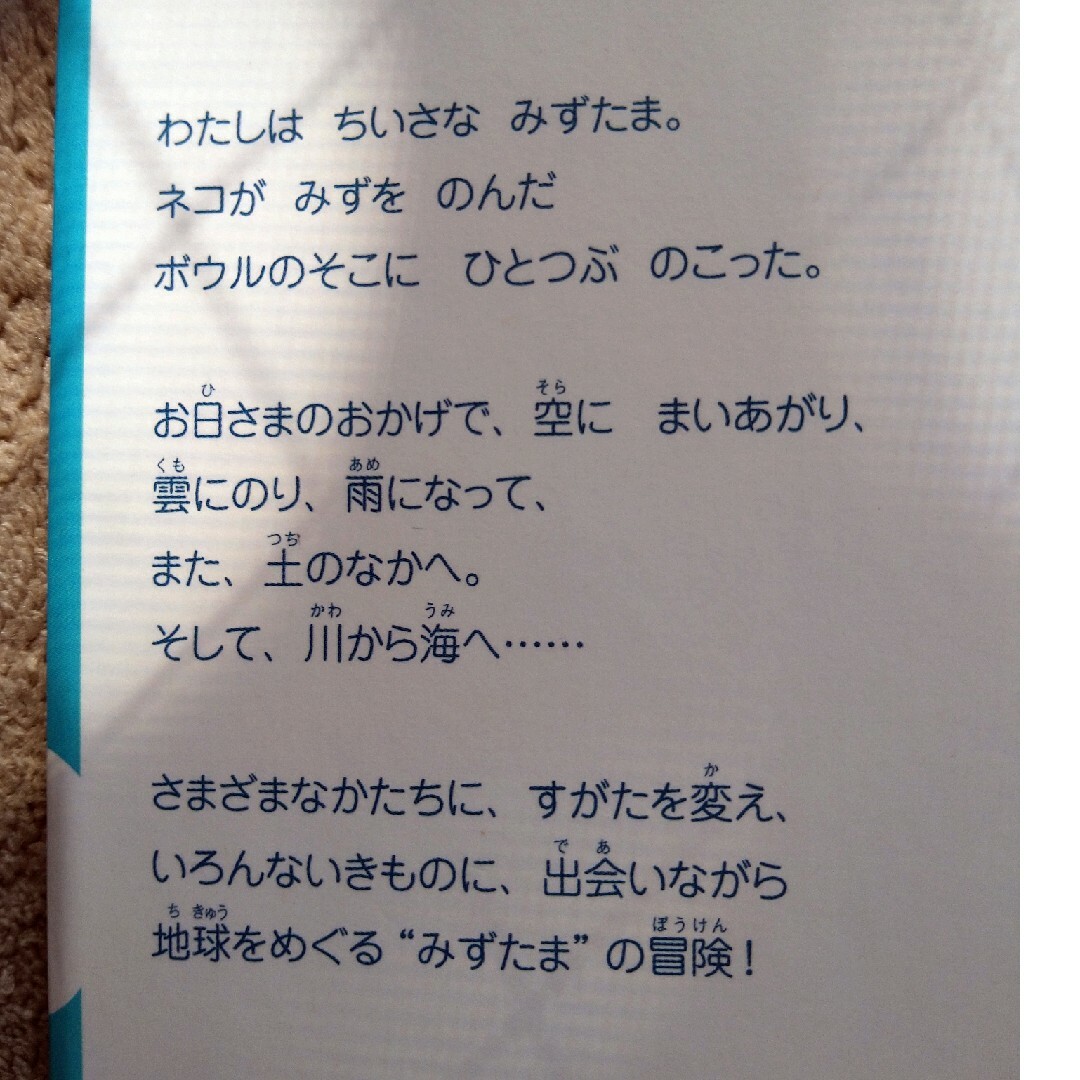 わたしは ちいさな みずたま。
ネコが みずを のんだ
ボウルのそこに ひとつぶ のこった。
お日さまのおかげで、空に まいあがり、
雲にのり、雨になって、
また、土のなかへ。
そして、川から海へ……
さまざまなかたちに、すがたを変え、
いろんないきものに、出会いながら
地球をめぐる“みずたま”の冒険！